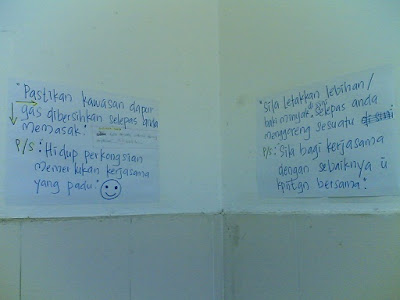 "Pastikan kawasan dapur
gas dibersihkan selepas anda
memasak."
P/s: Hidup perkongsian
memerlukan kerjasama
yang padu."
"Sila letakkan lebihan/
baki minyak selepas anda
menggoreng sesuatu
P/s: Sila bagi kerjasama
dengan sebaiknya ü
kptgn bersama."